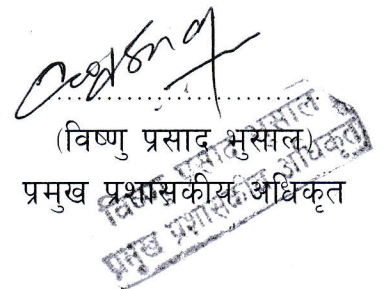 ..............................
(विष्णु प्रसाद भुसाल)
प्रमुख प्रशासकीय अधिकृत
विष्णु प्रसाद भुसाल
प्रमुख प्रशासकीय अधिकृत